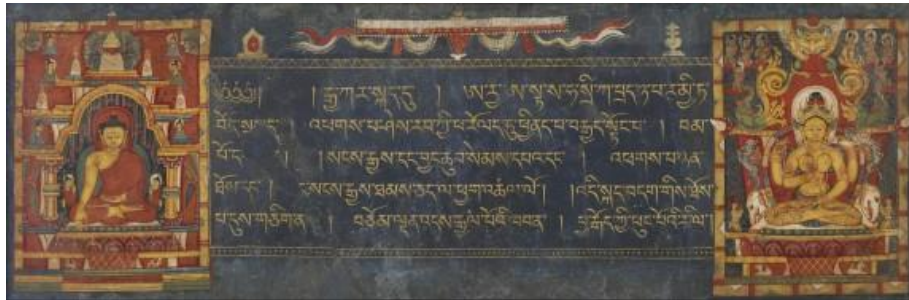 ༄༅༅། །རྒྱ་ཀར་སྐད་དུ། ཨརྱ་ཨ་སྟ་ས་ཧ་སྲི་ཀ་པྲད་ཉ་པ་རམྱི་ཏ
བོད་སྐད་དུ། འཕགས་པ་ཤས་རབ་ཀྱི་ཕ་རོལད་དུ་ཕྱིནད་པ་བརྒྱད་སྟོང་པ། བམ་
པོ་ད་ །སངས་རྒྱས་དང་བྱང་ཆུབ་སེམས་དཔའ་དང་། འཕགས་པ་ཉན་
ཐོས་དང་། རང་སངས་རྒྱས་ཐམས་ཅད་ལ་ཕྱག་འཚལ་ལོ། །འདི་སྐད་བདག་གིས་ཐོས་
པ་དུས་གཅིག་ན། བཅོམ་ལྡན་འདས་རྒྱལ་པོའི་ཁབ་ན། བྱ་རྒོད་ཀྱི་ཕུང་པོའི་རི་ལ།